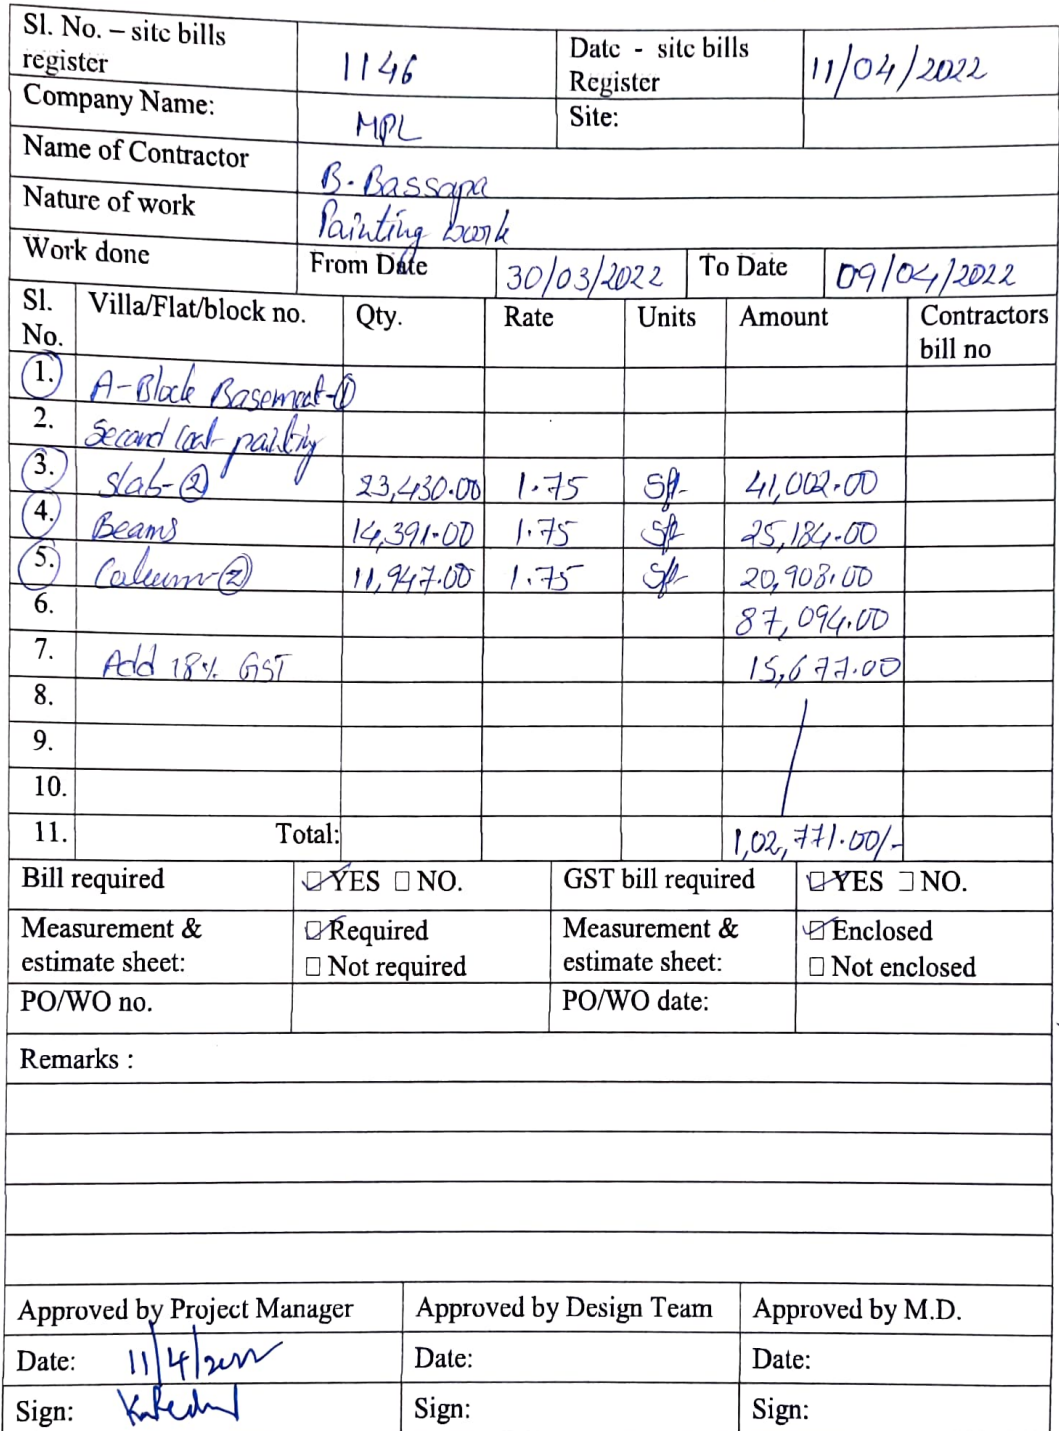 Sl. No. – site bills register 1146 Date - site bills Register 11/04/2022
Company Name: MPL Site:
Name of Contractor B. Bassapa
Nature of work Painting work
Work done From Date 30/03/2022 To Date 09/04/2022
Sl. No. Villa/Flat/block no. Qty. Rate Units Amount Contractors bill no
1. A-Block Basement-①
2. Second coat painting
3. Slab-② 23,430.00 1.75 Sft 41,002.00
4. Beams 14,391.00 1.75 Sft 25,184.00
5. Calumn-② 11,947.00 1.75 Sft 20,908.00
6. 87,094.00
7. Add 18% GST 15,677.00
8.
9.
10.
11. Total: 1,02,771.00/-
Bill required ☑ YES ☐ NO. GST bill required ☑ YES ☐ NO.
Measurement & estimate sheet: ☑ Required ☐ Not required Measurement & estimate sheet: ☑ Enclosed ☐ Not enclosed
PO/WO no. PO/WO date:
Remarks :
Approved by Project Manager Approved by Design Team Approved by M.D.
Date: 11/4/2022 Date: Date:
Sign: Sign: Sign: